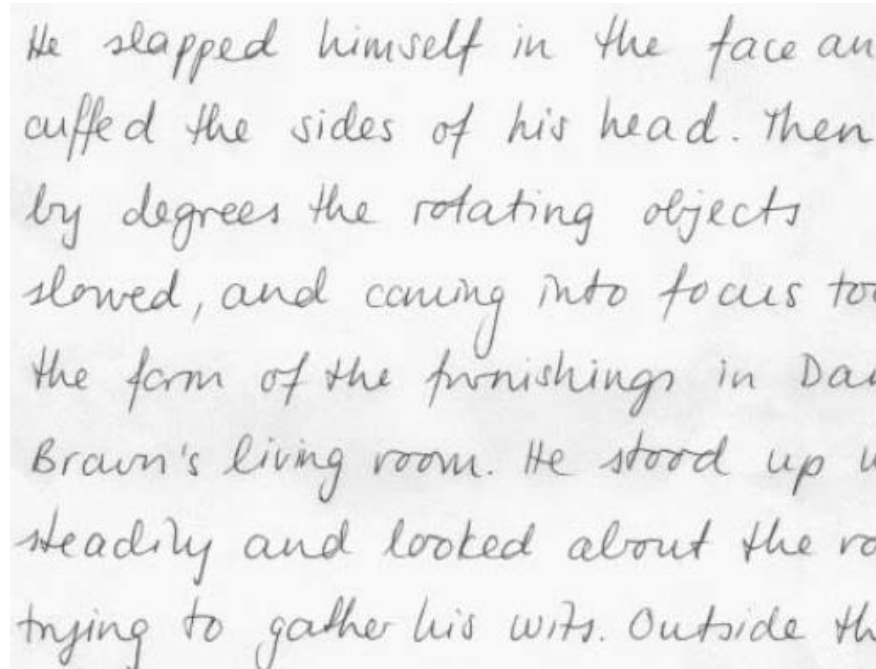 He slapped himself in the face an
cuffed the sides of his head. Then
by degrees the rotating objects
slowed, and coming into focus too
the form of the furnishings in Dav
Brown's living room. He stood up u
steadily and looked about the ro
trying to gather his wits. Outside th